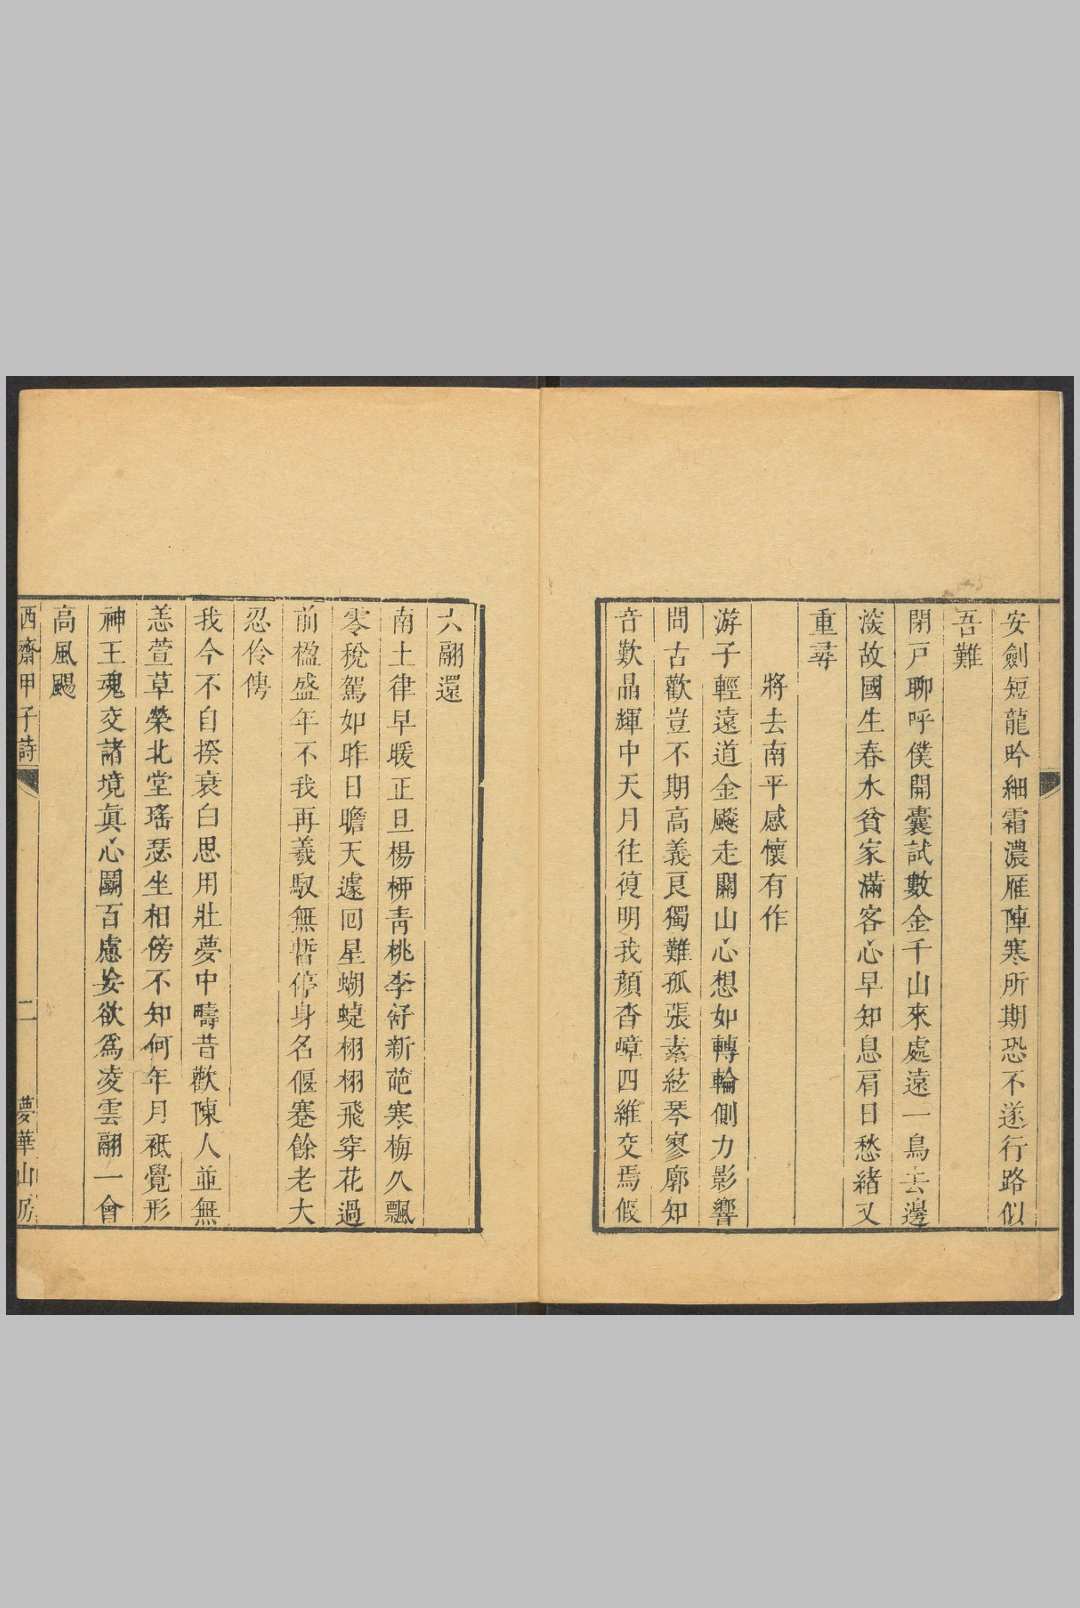 安劍短龍吟細霜濃雁陣寒所期恐不遂行路似
吾難
閉戸聊呼僕開囊試數金千山來處遠一鳥去邊
深故國生春水貧家滿客心早知息肩日愁緒又
重尋
將去南平感懷有作
游子輕遠道金飈走關山心想如轉輪側力影響
間古歡豈不期高義良獨難孤張素絃琴寥廓知
音歎晶輝中天月往復明我顏杳嶂四維交焉假
六翮還
南土律早暖正旦楊柳靑桃李舒新葩寒梅久飄
零稅駕如昨日瞻天遽囘星蝴蜨栩栩飛穿花過
前楹盛年不我再羲馭無暫停身名偃蹇餘老大
忍伶俜
我今不自揆衰白思用壯夢中疇昔歡陳人並無
恙萱草榮北堂瑤瑟坐相傍不知何年月祗覺形
神王魂交諸境眞心鬭百慮妄欲爲凌雲翮一會
高風颺
西齋甲子詩 二 夢華山房